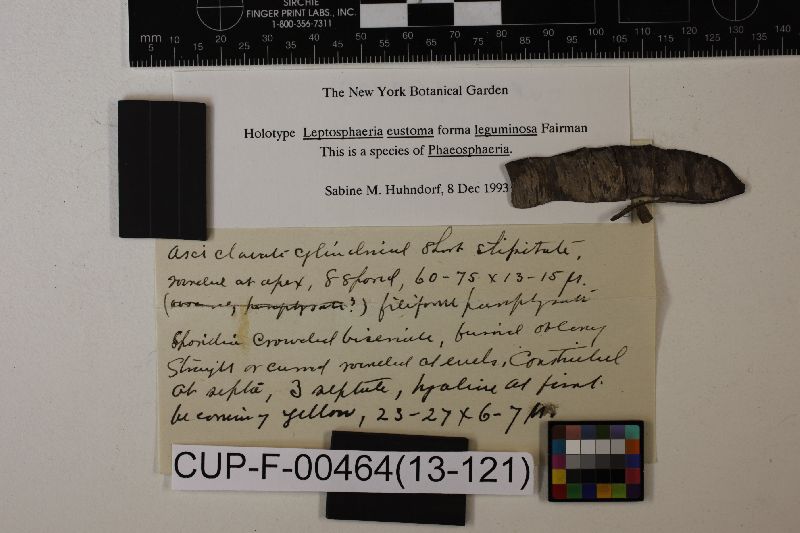 SIRCHIE
FINGER PRINT LABS., INC.
1-800-356-7311
mm 5 10 20 30 40 50 60 70 80 90 100 110 120 130 140
The New York Botanical Garden
Holotype Leptosphaeria eustoma forma leguminosa Fairman
This is a species of Phaeosphaeria.
Sabine M. Huhndorf, 8 Dec 1993
Asci clavate cylindrical short stipitate,
rounded at apex, 8 spored, 60-75 x 13-15 µ.
(paraphysate?) filiform paraphysate
Sporidia crowded biseriate, fusoid oblong
Straight or curved rounded at ends, Constricted
at septa, 3 septate, hyaline at first
becoming yellow, 23-27 x 6-7 µ
CUP-F-00464(13-121)